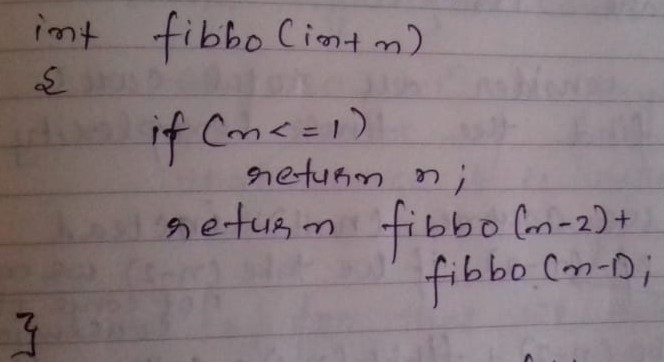 int fibbo (int n)
{
if (n <= 1)
return n;
return fibbo (n-2) +
fibbo (n-1);
}